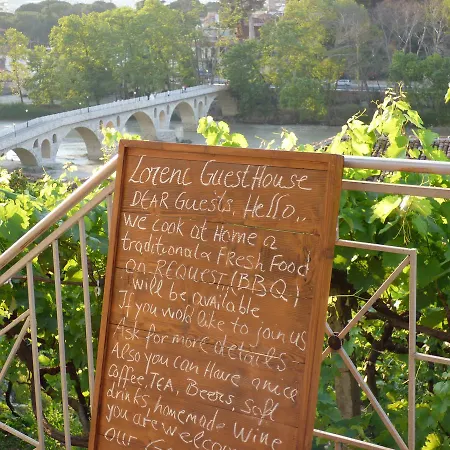 Lorenc GuestHouse
DEAR Guests, Hello,,
we cook at Home a
traditional & Fresh Food
on-REQUEST (BBQ,)
will be available
If you wold like to join us
Ask for more details
Also you can Have a nice
coffee, TEA, Beers, soft
drinks, homemade Wine
you are welcome
our